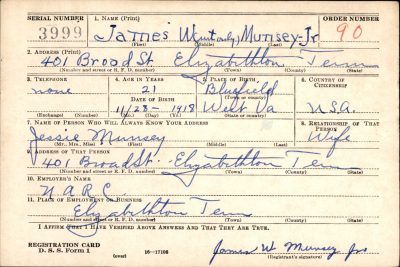 SERIAL NUMBER 1. NAME (Print) ORDER NUMBER
3999 James Munsey-Jr 90
(First) (Middle) (Last)
2. ADDRESS (Print)
401 Broad St. Elizabethton Tenn
(Number and street or R. F. D. number) (Town) (County) (State)
3. TELEPHONE 4. AGE IN YEARS 5. PLACE OF BIRTH 6. COUNTRY OF CITIZENSHIP
none 21 Bluefield
DATE OF BIRTH (Town or county)
11/28- 1918 West Va U.S.A.
(Exchange) (Number) (Mo.) (Day) (Yr.) (State or country)
7. NAME OF PERSON WHO WILL ALWAYS KNOW YOUR ADDRESS 8. RELATIONSHIP OF THAT PERSON
Jessie Munsey Wife
(Mr., Mrs., Miss) (First) (Middle) (Last)
9. ADDRESS OF THAT PERSON
401 Broad St. Elizabethton Tenn
(Number and street or R. F. D. number) (Town) (County) (State)
10. EMPLOYER'S NAME
N.A.R.C
11. PLACE OF EMPLOYMENT OR BUSINESS
Elizabethton Tenn
(Number and street or R. F. D. number) (Town) (County) (State)
I AFFIRM THAT I HAVE VERIFIED ABOVE ANSWERS AND THAT THEY ARE TRUE.
REGISTRATION CARD
D. S. S. Form 1 (over) 16—17105 James W. Munsey Jr
(Registrant's signature)